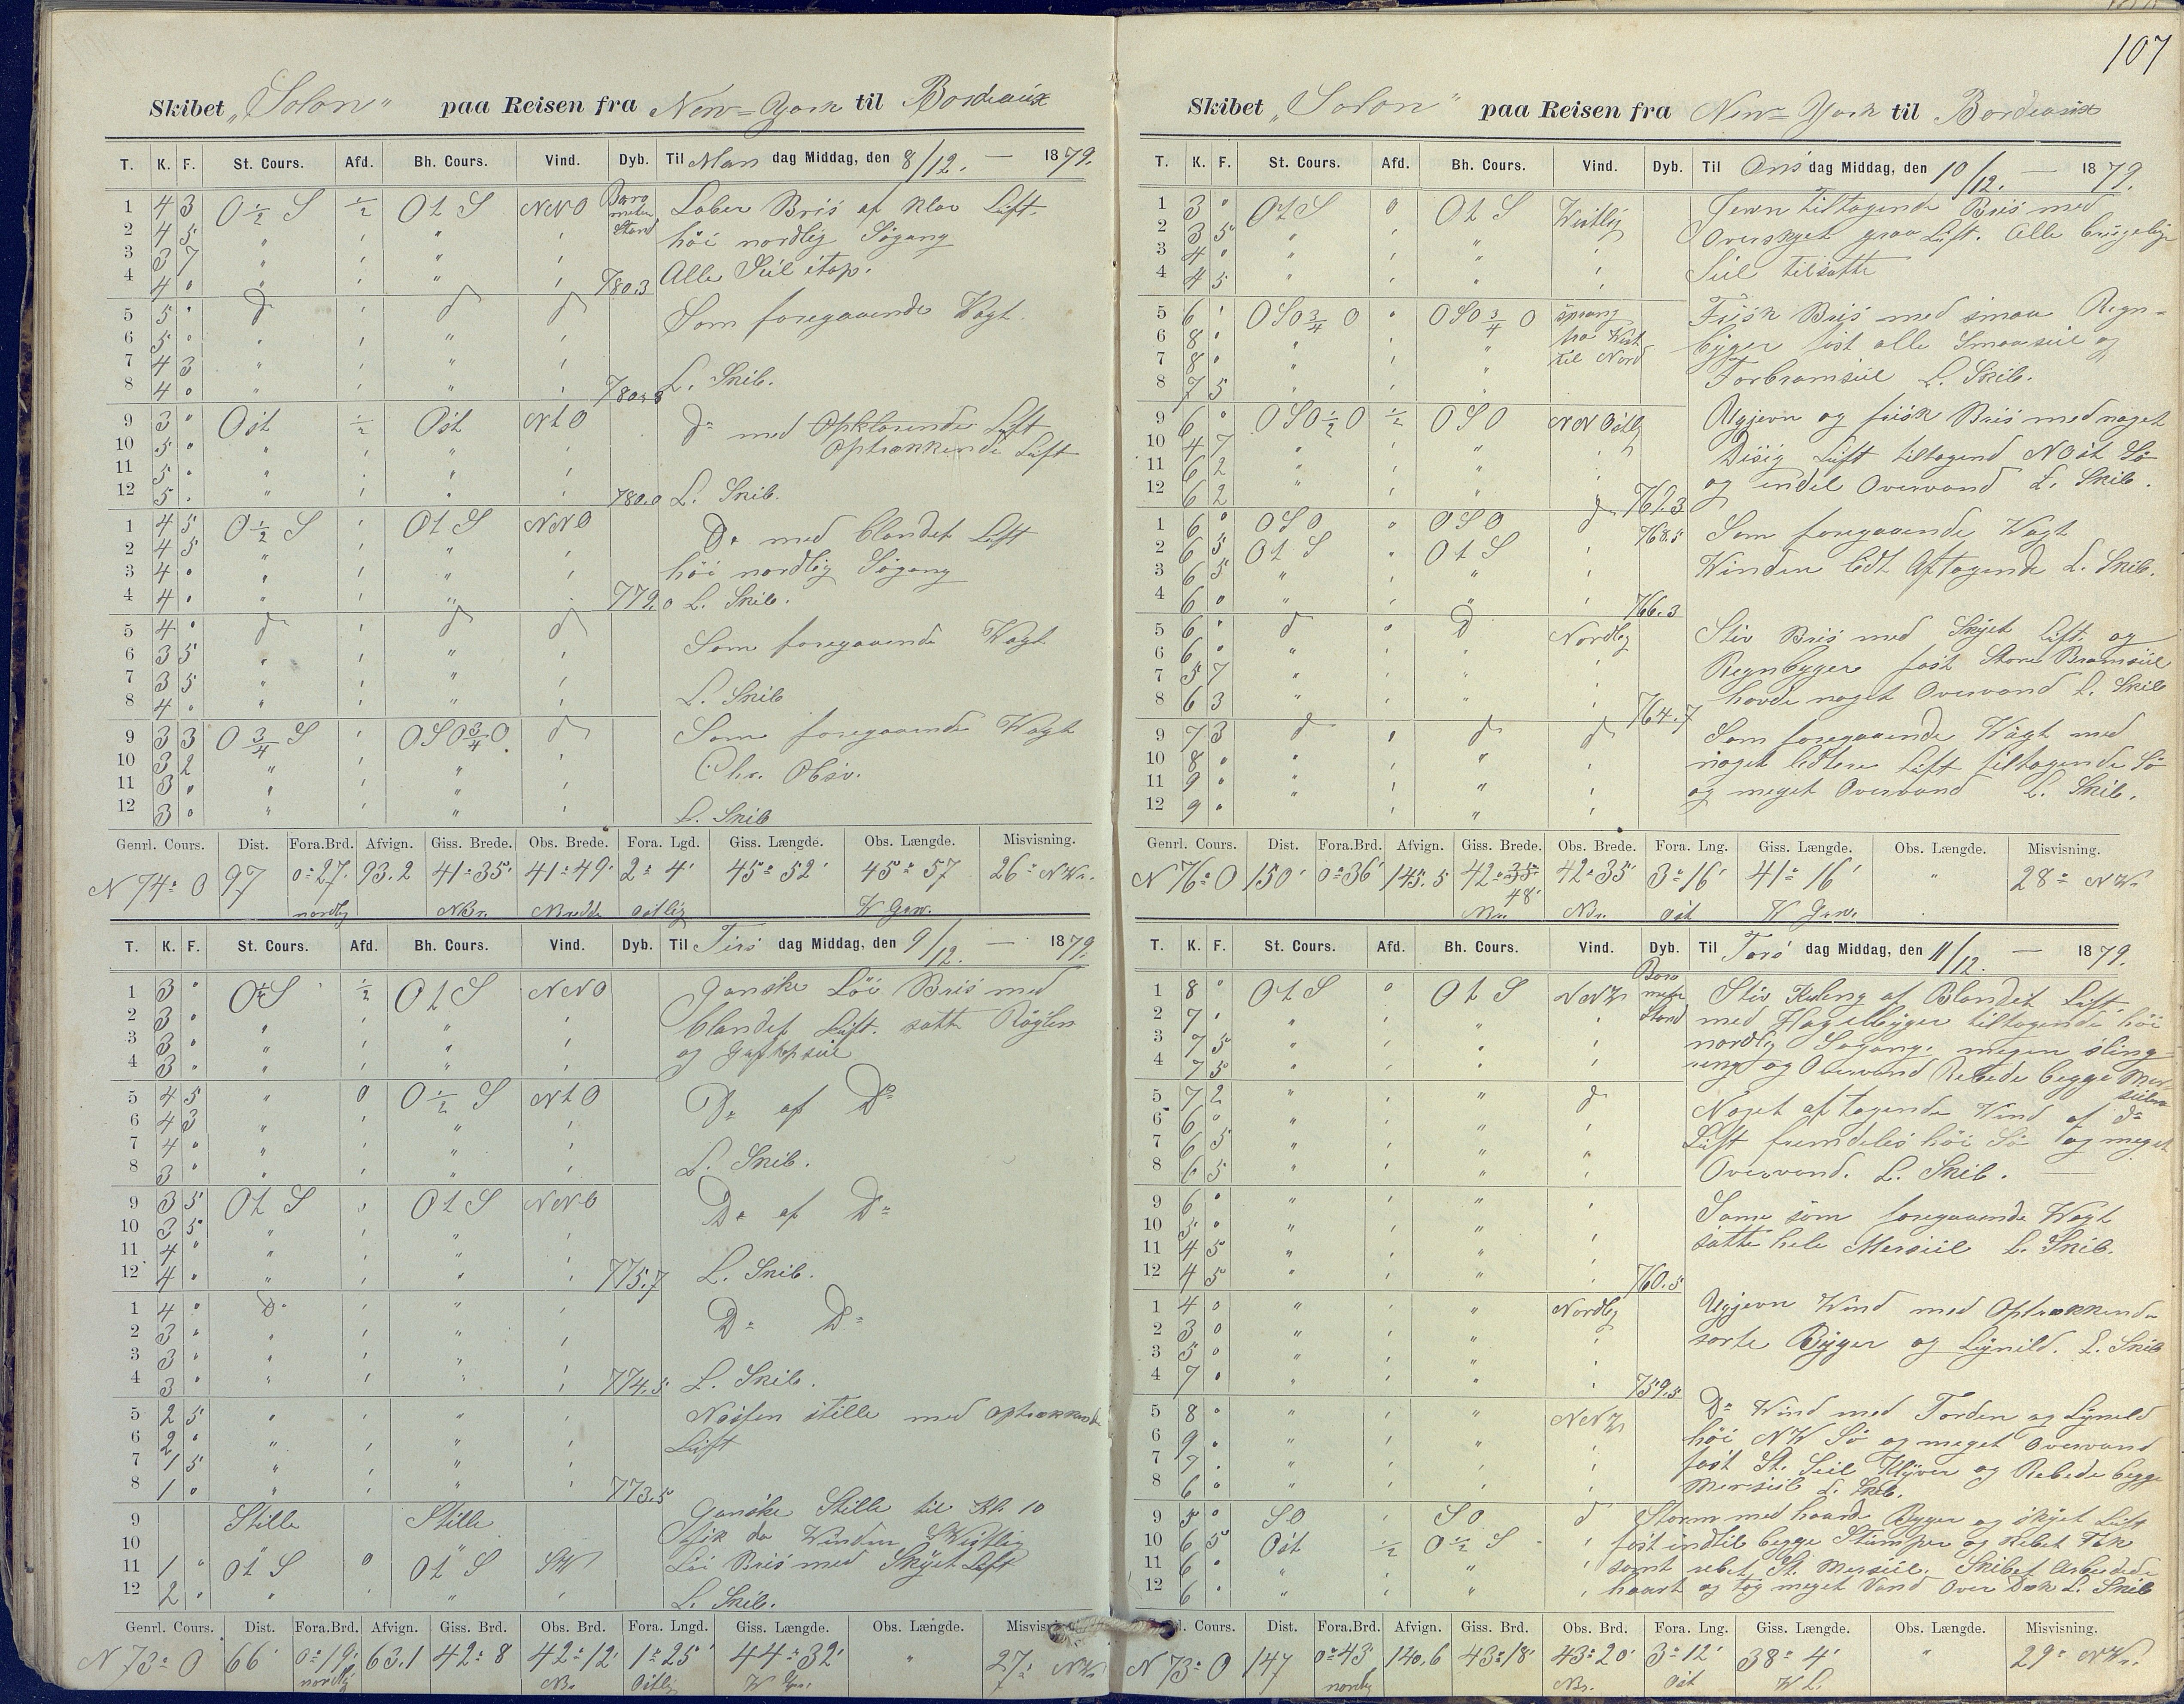 107
Skibet „Solon" paa Reisen fra New=York til Bordeaux
T. K. F. St. Cours. Afd. Bh. Cours. Vind. Dyb. Til Man dag Middag, den 8/12. — 1879.
1 4 3 O ½ S ½ O t S NNO Baro meter Stand Laber Bris af klar Luft.
2 4 5 " ' " ' høi nordlig Søgang
3 3 7 " ' " ' Alle Seil itop.
4 4 " " ' " ' 780.3
5 5 " d ' d d Som foregaaende Vagt.
6 5 " " ' " '
7 4 3 " ' " ' L. Skib.
8 4 " " ' " ' 780.8
9 3 " Ost ½ Ost NtO D° med Opklarende Luft
10 5 " " ' " ' Optrækkende Luft
11 5 " " ' " '
12 5 " " ' " ' 780.0 L. Skib.
1 4 5 O ½ S ' O t S NNO D° med blandet Luft
2 4 5 " ' " ' høi nordlig Søgang
3 4 " " ' " '
4 4 " " ' " ' 779.0 L. Skib.
5 4 " d ' d d Som foregaaende Vagt
6 3 5 " ' " '
7 3 5 " ' " ' L. Skib
8 4 " " ' " '
9 3 3 O ¾ S ' OSO ¾ O d Som foregaaende Vagt
10 3 2 " ' " ' Chr. Obsv.
11 3 " " ' " '
12 3 " " ' " ' L. Skib
Genrl. Cours. Dist. Fora.Brd. Afvign. Giss. Brede. Obs. Brede. Fora. Lgd. Giss. Længde. Obs. Længde. Misvisning.
N 74° O 97 0° 27' 93.2 41° 35' 41° 49' 2° 4' 45° 52' 45° 57 26° NW.
nordlig NBr. NBredde østlig W Grw.
T. K. F. St. Cours. Afd. Bh. Cours. Vind. Dyb. Til Tirs dag Middag, den 9/12. — 1879.
1 3 " O½S ½ O t S NNO Ganske Løi Bris med
2 3 " " ' " ' blandet Luft. satte Røylen
3 3 " " ' " ' og Gaftopseil
4 3 " " ' " '
5 4 5 " 0 O ½ S NtO D° af D°
6 4 3 " ' " '
7 4 " " ' " '
8 3 " " ' " ' L. Skib.
9 3 5 O t S " O t S NNO D° af D°
10 3 5 " ' " '
11 4 " " ' " '
12 4 " " ' " ' 775.7 L. Skib.
1 4 " D° ' " ' D° D°
2 3 " " ' " '
3 3 " " ' " '
4 3 " " ' " ' 774.5 L. Skib.
5 2 5 " ' " ' Næsten stille med optrækkende
6 2 " " ' " ' Luft
7 1 5 " ' " '
8 1 " " ' " ' 773.5
9 Stille Stille Ganske Stille til Kl. 10
10 " " da Vinden SVestlig
11 1 " O t S 0 O t S SW Løi Bris med Skyet Luft
12 2 " " ' " ' L. Skib.
Genrl. Cours. Dist. Fora.Brd. Afvign. Giss. Brd. Obs. Brd. Fora. Lngd. Giss. Længde. Obs. Længde. Misvisning.
N 73° O 66' 0° 19' 63.1 42° 8 42° 12' 1° 25' 44° 32' " 27° NW
nordlig NBr Østlig W Grw.
Skibet „Solon" paa Reisen fra New=York til Bordeaux
T. K. F. St. Cours. Afd. Bh. Cours. Vind. Dyb. Til Ons dag Middag, den 10/12. — 1879.
1 3 " OtS 0 O t S Vestlig Jevn tiltagende Bris med
2 3 5 " ' " ' Overskyet graa Luft. Alle brugelige
3 4 " " ' " ' Seil tilsatte
4 4 5 " ' " '
5 6 ' OSO ¾ O " OSO ¾ O sprang Frisk Bris med smaa Regn=
6 8 " " ' " fra Vest byger fast alle Smaaseil og
7 8 " " ' " til Nord Forbramseil L. Skib.
8 7 5 " ' " '
9 6 " OSO ½ O ½ OSO NNOstlig Ugjevn og frisk Bris med noget
10 4 7 " ' " ' Disig Luft tiltagend NOst Sø
11 6 2 " ' " ' og endel Overvand L. Skib.
12 6 2 " ' " ' 767.3
1 6 " OSO " OSO d 768.5 Som foregaaende Vagt
2 6 5 O t S " O t S ' Vinden lidt Aftagende L. Skib.
3 6 5 " ' " '
4 6 " " ' " ' 766.3
5 6 " d " d Nordlig Stiv Bris med Skyet Luft og
6 6 " " ' " ' Regnbyger fast Store Bramseil
7 5 7 " ' " ' havde noget Overvand L. Skib
8 6 3 " ' " ' 764.7
9 7 3 d " d d Som foregaaende Vagt med
10 8 " " ' " ' noget lettere Luft tiltagende Sø
11 9 " " ' " ' og meget Overvand L. Skib.
12 9 " " ' " '
Genrl. Cours. Dist. Fora.Brd. Afvign. Giss. Brede. Obs. Brede. Fora. Lng. Giss. Længde. Obs. Længde. Misvisning.
N 76° O 150' 0° 36' 145.5 42° 35' 48' 42° 35' 3° 16' 41° 16' " 28° NW
Nr. NBr. Øst W Grw.
T. K. F. St. Cours. Afd. Bh. Cours. Vind. Dyb. Til Tors dag Middag, den 11/12. — 1879.
1 8 " O t S 0 O t S NNW Baro meter Stand Stiv Kuling af Blandet Luft
2 7 ' " ' " ' med Hagelbyger tiltagende høi
3 7 5 " ' " ' nordlig Søgang. megen sling=
4 7 5 " ' " ' reng og Overvand Rebede begge Mer
5 7 2 " ' " d seilene
6 6 " " ' " ' Noget aftagende Vind af d°
7 6 5 " ' " ' Luft fremdeles høi Sø og meget
8 6 5 " ' " ' Overvand. L. Skib. —
9 6 " " ' " ' Same som foregaaende Vagt
10 5 " " ' " ' satte hele Merseil L. Skib.
11 4 5 " ' " '
12 4 5 " ' " ' 760.5
1 4 0 " ' " Nordlig Ugjevn Vind med Optrækkende
2 3 0 " ' " ' sorte Byger og Lynild. L. Skib
3 5 0 " ' " '
4 7 " " ' " ' 759.5
5 8 " " ' " NNW D° Vind med Torden og Lynild
6 9 " " ' " ' høi NW Sø og meget Overvand
7 7 " " ' " ' fast St. Seil Klyver og Rebede begge
8 6 " " ' " ' Merseil L. Skib.
9 5 " SO ' SO d Storm med haarde Byger og skyet Luft
10 6 5 Ost ½ O ½ S ' fast indtil begge Stumper og Rebet Fok
11 6 " " ' " ' samt rebet St. Merseil. Skibet Arbeidede
12 6 " " ' " ' haart og tog meget Vand Over Dæk L. Skib
Cours. Dist. Fora.Brd. Afvign. Giss. Brd. Obs. Brd. Fora. Lng. Giss. Længde. Obs. Længde. Misvisning.
N 73° O 147 0° 43' 140.6 43° 18' 43° 20' 3° 12' 38° 4' " 29° NW.
nordlig NBr. Øst W L.